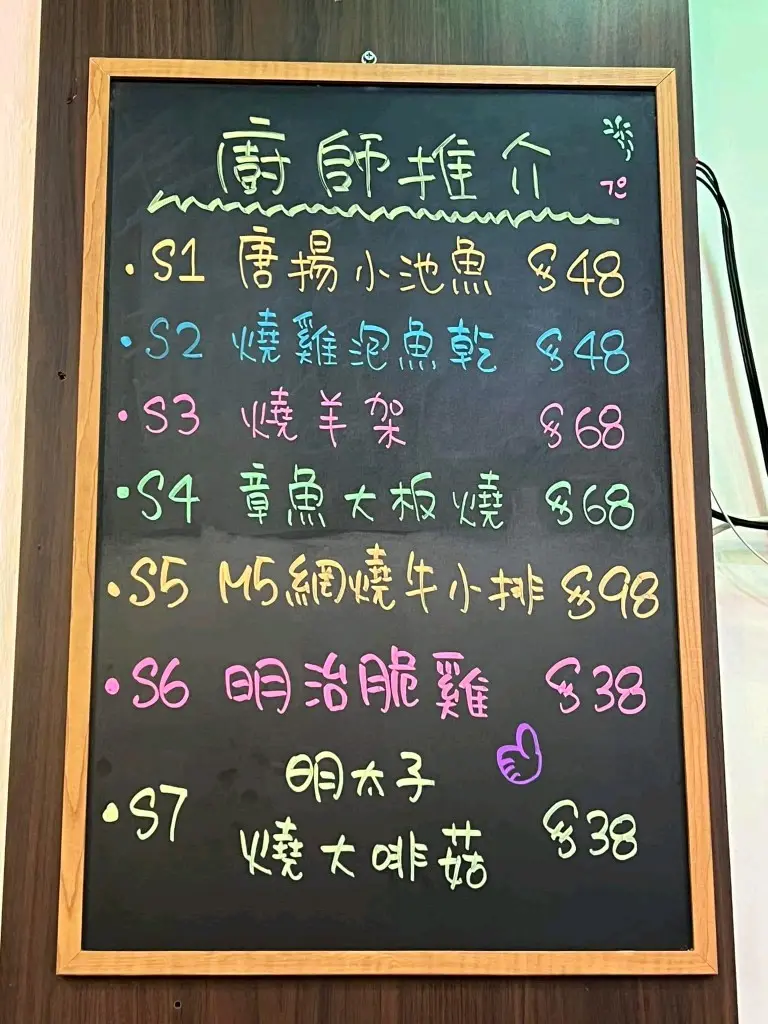 廚師推介
·S1 唐揚小池魚 $48
·S2 燒雞泡魚乾 $48
·S3 燒羊架 $68
·S4 章魚大板燒 $68
·S5 M5網燒牛小排 $98
·S6 明治脆雞 $38
明太子
·S7 燒大啡菇 $38